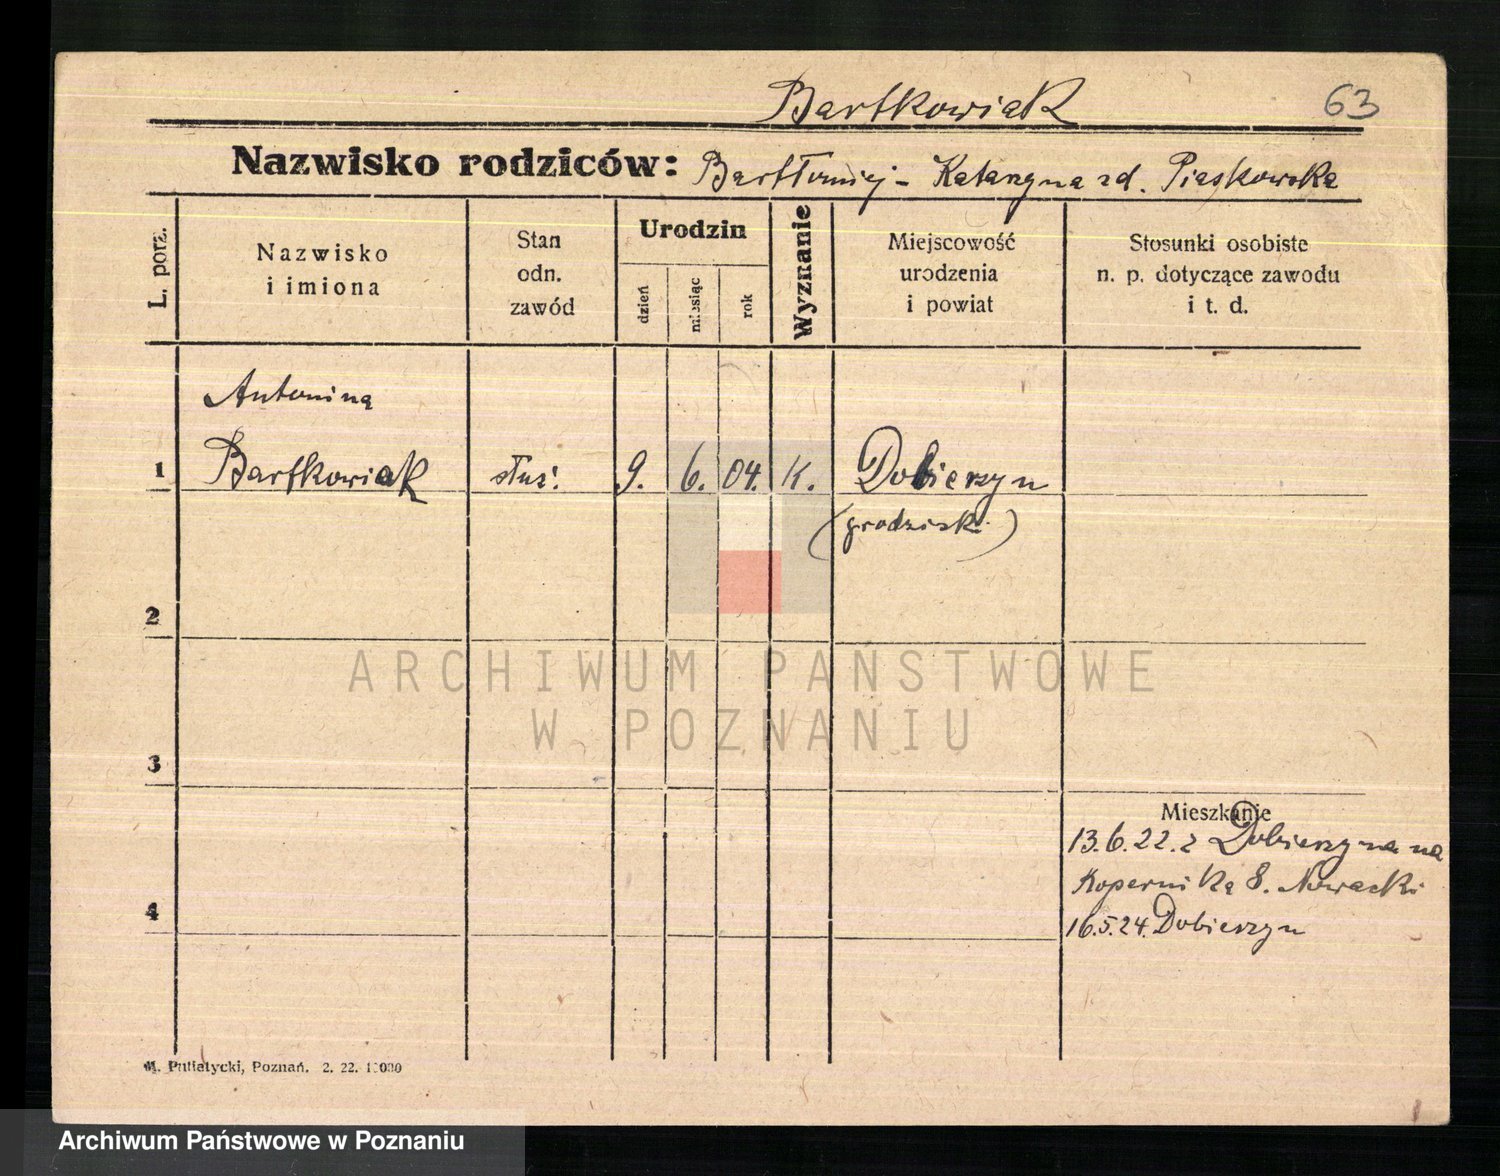 Bartkowiak
63
Nazwisko rodziców: Bartłomiej - Katarzyna zd. Piaskowska
L. porz.
Nazwisko
i imiona
Stan
odn.
zawód
Urodzin
dzień
miesiąc
rok
Wyznanie
Miejscowość
urodzenia
i powiat
Stosunki osobiste
n. p. dotyczące zawodu
i t. d.
Antonina
1 Bartkowiak służ. 9. 6. 04. K. Dobierzyn
(grodzisk.)
2
ARCHIWUM PAŃSTWOWE
W POZNANIU
3
Mieszkanie
13.6.22. z Dobierzyna na
Kopernika 8. Nowacki
4
16.5.24. Dobierzyn
Poznań. 2. 22.
Archiwum Państwowe w Poznaniu